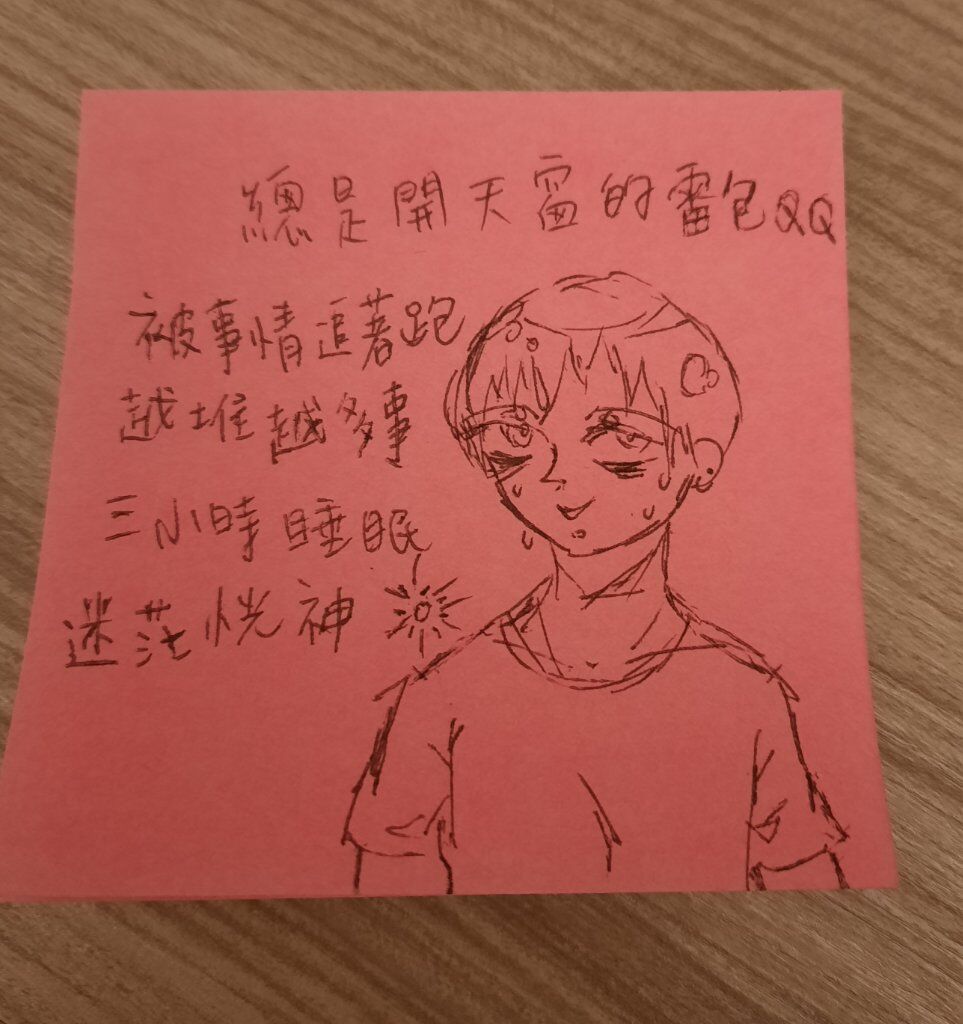 總是開天窗的雷包QQ
被事情追著跑
越堆越多事
三小時睡眠
迷茫恍神